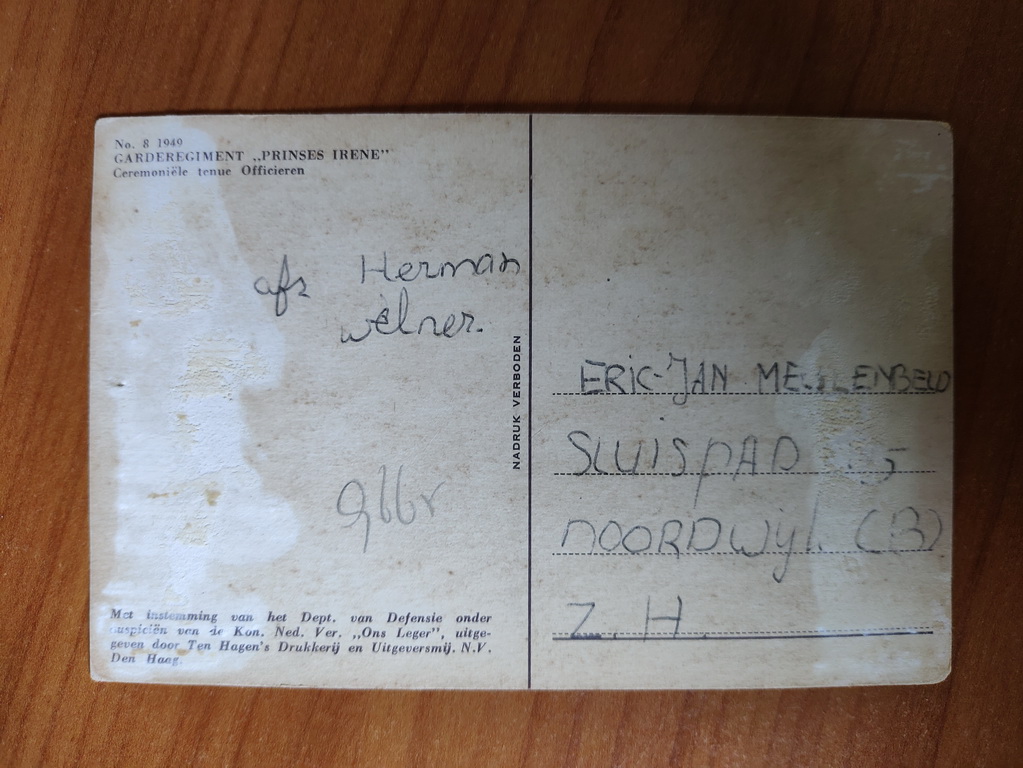 No. 8 1949
GARDEREGIMENT „PRINSES IRENE”
Ceremoniële tenue Officieren
afz Herman
welner.
NADRUK VERBODEN
ERIC-JAN
SLUISPAD
NOORDWIJK (B)
Z. H.
Met instemming van het Dept. van Defensie onder
auspiciën van de Kon. Ned. Ver. „Ons Leger”, uitge-
geven door Ten Hagen's Drukkerij en Uitgeversmij. N.V.
Den Haag.